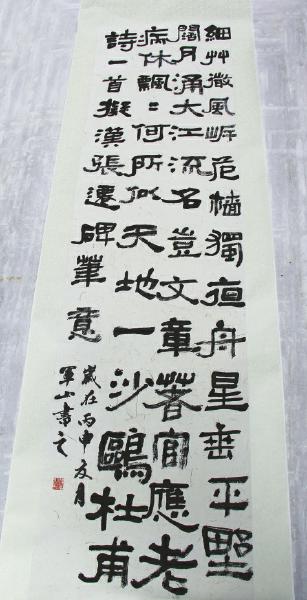 細艸微風岸危檣獨夜舟星垂平野
闊月涌大江流名豈文章著官應老
病休飄〻何所似天地一沙鷗杜甫
詩一首擬漢張遷碑筆意
歲在丙申月
軍山書之